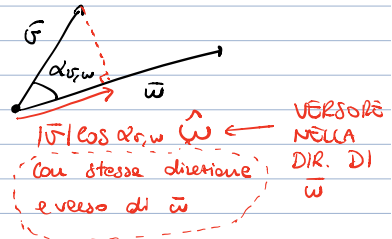 v̄
α v,w
w̄
|v̄| cos α v,w ŵ
VERSORE
NELLA
DIR. DI
w̄
con stessa direzione
e verso di w̄